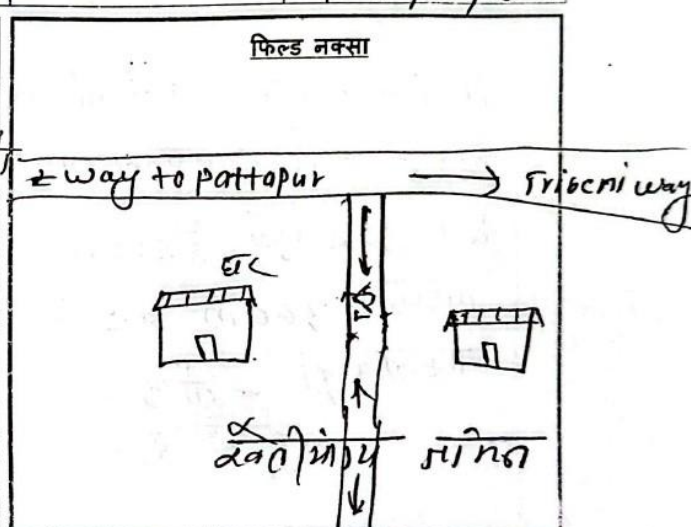 फिल्ड नक्सा
way to pattapur → Tribeni way
घर
खेती योग्य जमिन